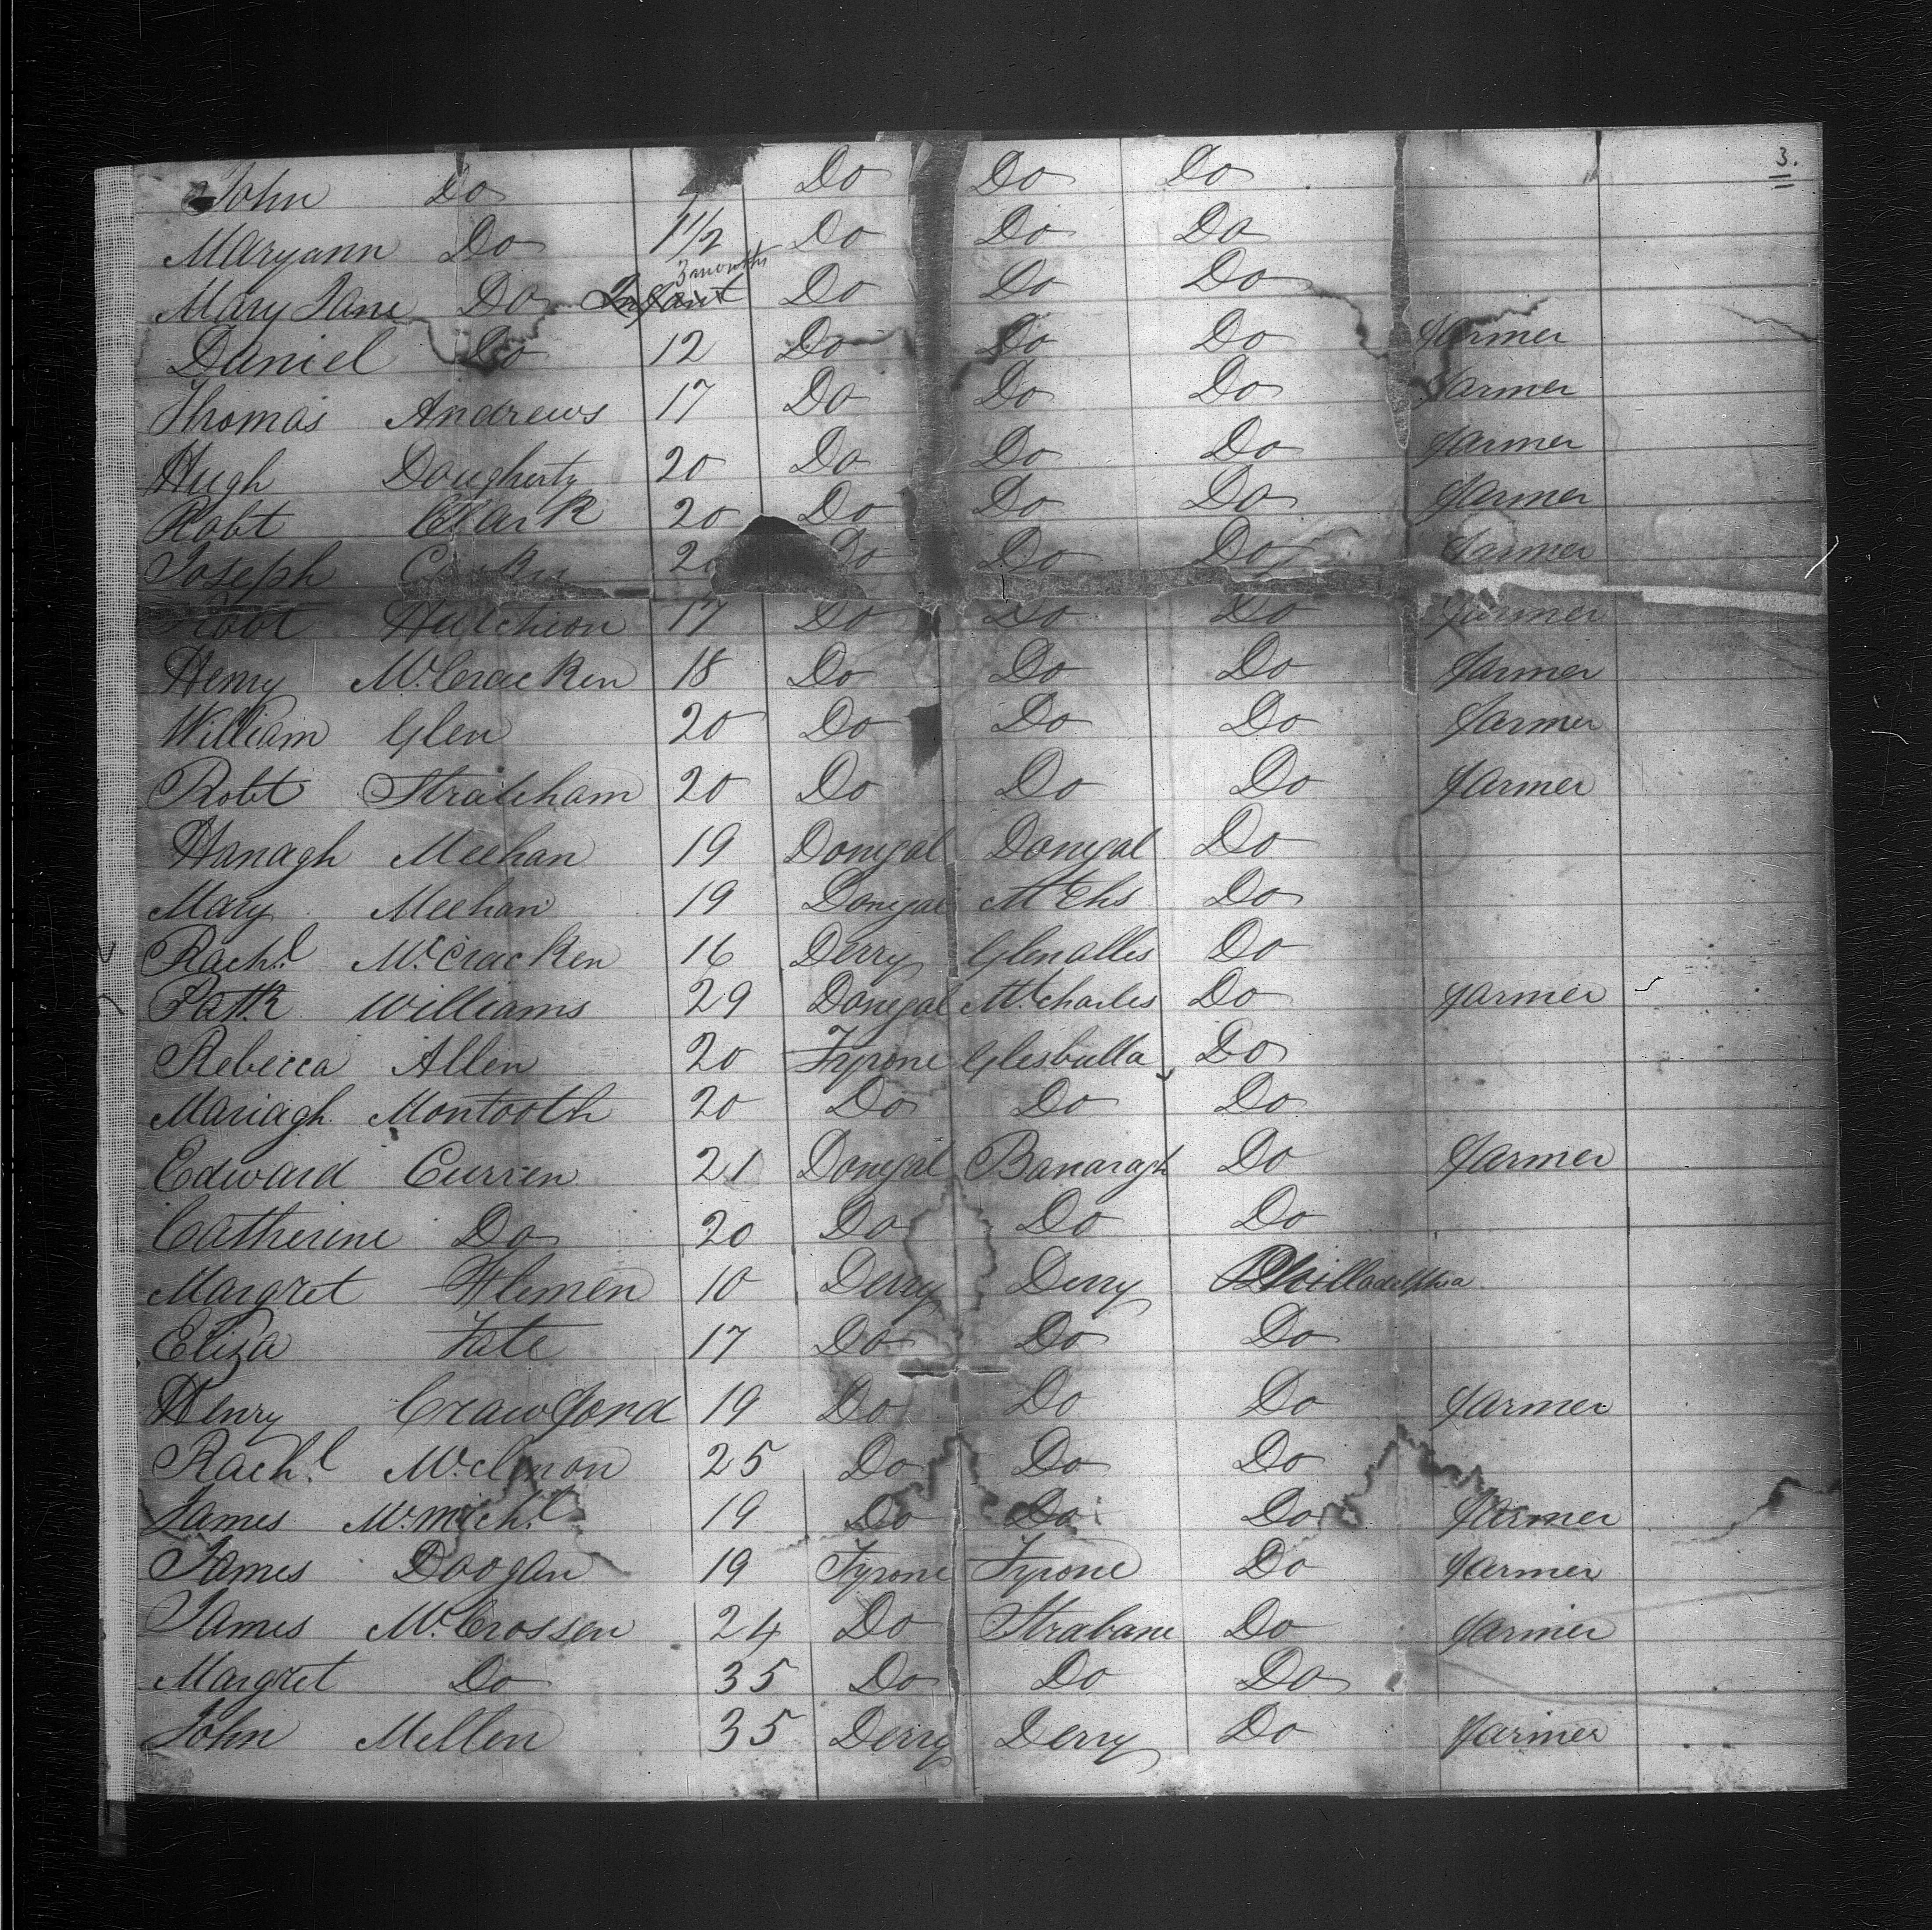 3.
John Do Do Do Do
Maryann Do 1 1/2 Do Do Do
3 months
Mary Jane Do Infant Do Do Do
Daniel Do 12 Do Do Do farmer
Thomas Andrews 17 Do Do Do farmer
Hugh Dougherty 20 Do Do Do farmer
Robt Clark 20 Do Do Do farmer
Joseph Do Do Do farmer
Robt Hutcheon 17 Do Do Do farmer
Henry McCracken 18 Do Do Do farmer
William Glen 20 Do Do Do farmer
Robt Stratcham 20 Do Do Do farmer
Hanagh Meehan 19 Donegal Donegal Do
Mary Meehan 19 Donegal Mt Chs Do
Rachl McCracken 16 Derry Glenalles Do
Patk Williams 29 Donegal Mt Charles Do farmer
Rebecca Allen 20 Tyrone Glesbulla Do
Mariagh Montooth 20 Do Do Do
Edward Curren 21 Donegal Banaragh Do farmer
Catherine Do 20 Do Do Do
Margret Flemen 10 Derry Derry Philladelphia
Eliza Tate 17 Do Do Do
Henry Crawford 19 Do Do Do farmer
Rachl McLmon 25 Do Do Do
James McMichl 19 Do Do Do farmer
James Doogan 19 Tyrone Tyrone Do farmer
James McCrossen 24 Do Strabane Do farmer
Margret Do 35 Do Do Do
John Mellen 35 Derry Derry Do farmer